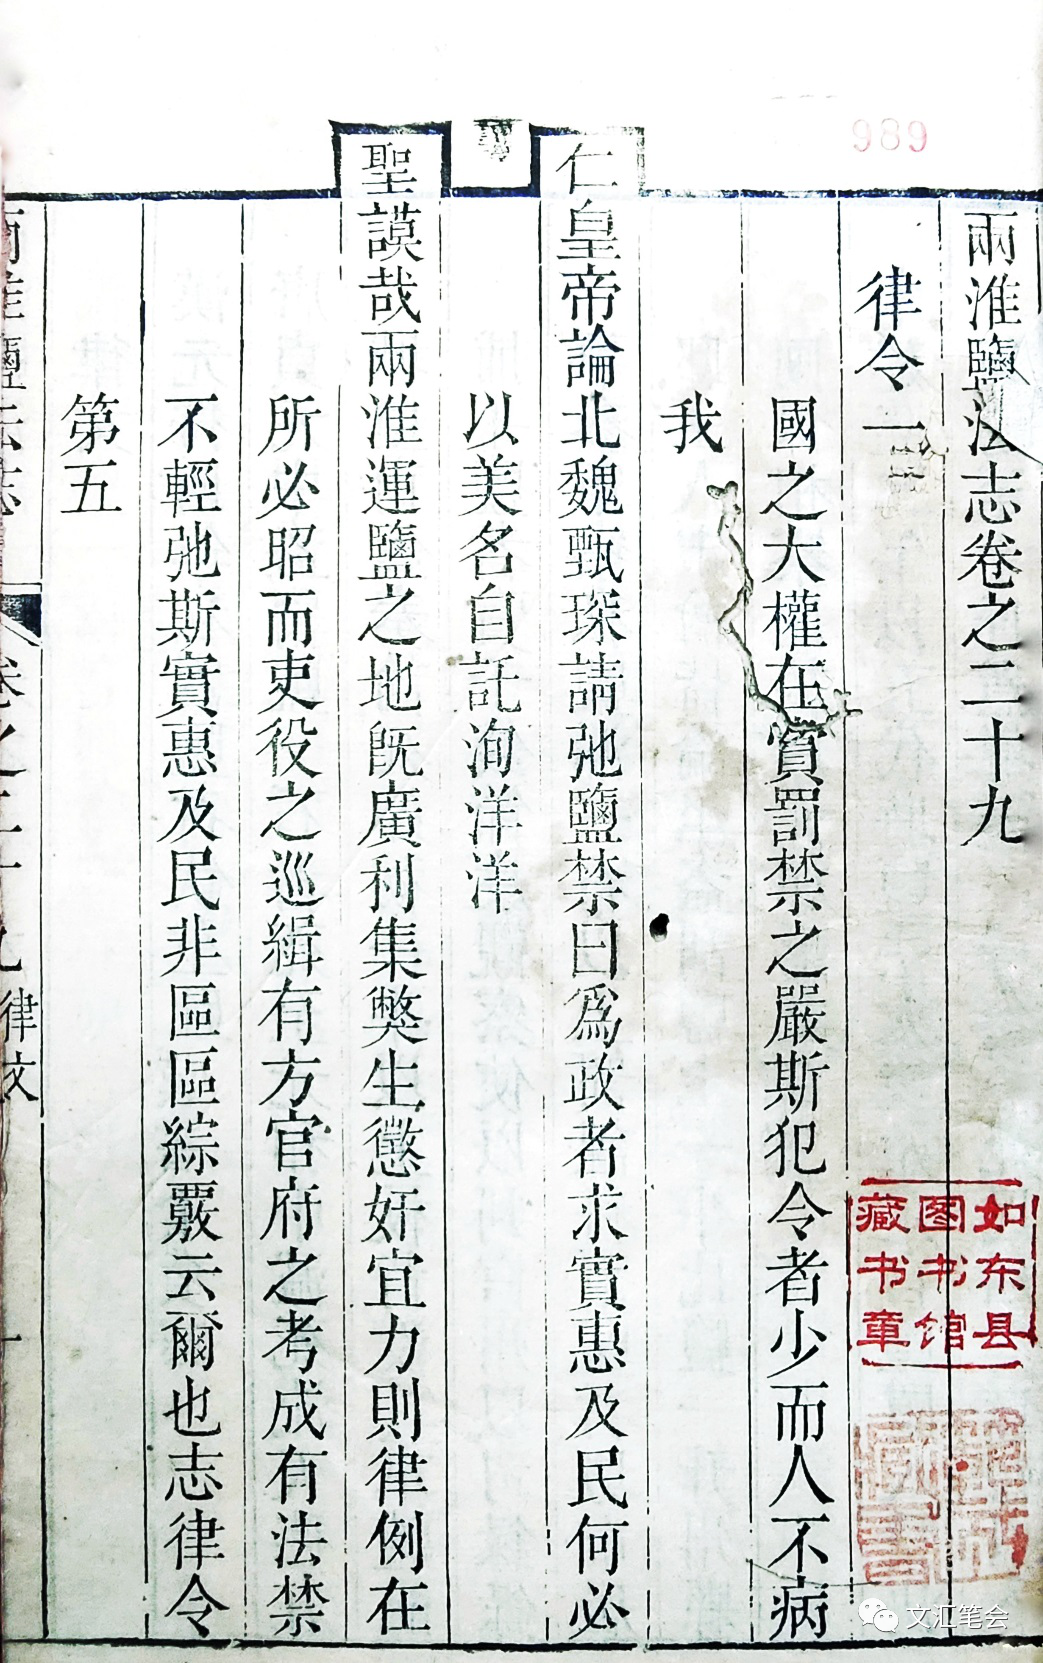 989
兩淮鹽法志卷之二十九
律令一
國之大權在賞罰禁之嚴斯犯令者少而人不病
我
仁皇帝論北魏甄琛請弛鹽禁曰爲政者求實惠及民何必
以美名自託洵洋洋
聖謨哉兩淮運鹽之地旣廣利集獘生懲奸宜力則律例在
所必昭而吏役之巡緝有方官府之考成有法禁
不輕弛斯實惠及民非區區綜覈云爾也志律令
第五
兩淮鹽法志
卷之二十九
律文
一
如东县
图书馆
藏书章
文汇笔会